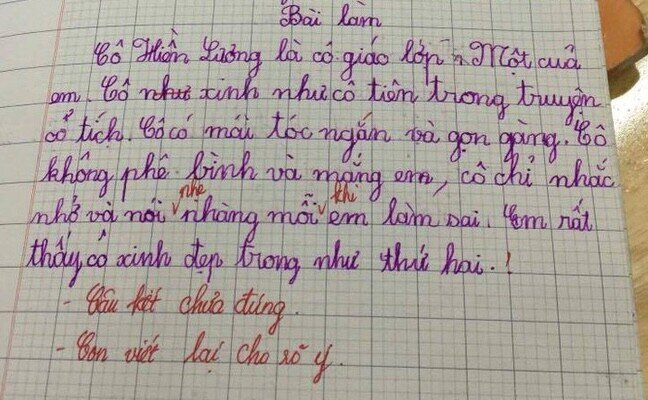 Bài làm
Cô Hiền Lương là cô giáo lớp Một của
em. Cô như xinh như cô tiên trong truyện
cổ tích. Cô có mái tóc ngắn và gọn gàng. Cô
không phê bình và mắng em, cô chỉ nhắc
nhở và nói nhẹ nhàng mỗi khi em làm sai. Em rất
thấy cô xinh đẹp trong như thứ hai.!
- Câu kết chưa đúng.
- Con viết lại cho rõ ý.